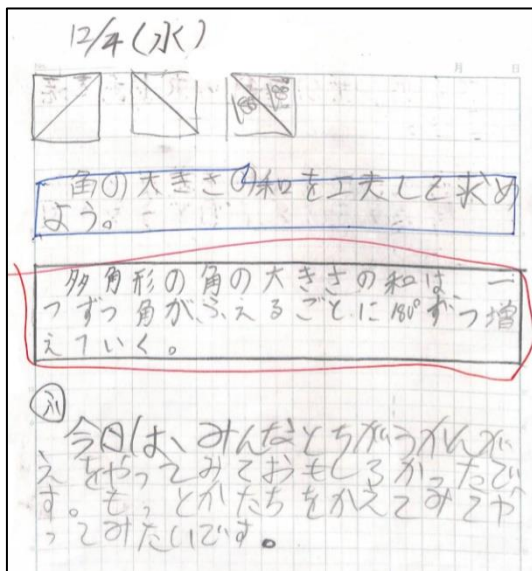 12/4(水)
月 日
180° 180°
角の大きさの和を工夫して求め
よう。
多角形の角の大きさの和は、一
つずつ角がふえるごとに180°ずつ増
えていく。
ふ
今日は、みんなとちがうかんが
えをやってみておもしろかったで
す。もっとかたちをかえてみてや
ってみたいです。